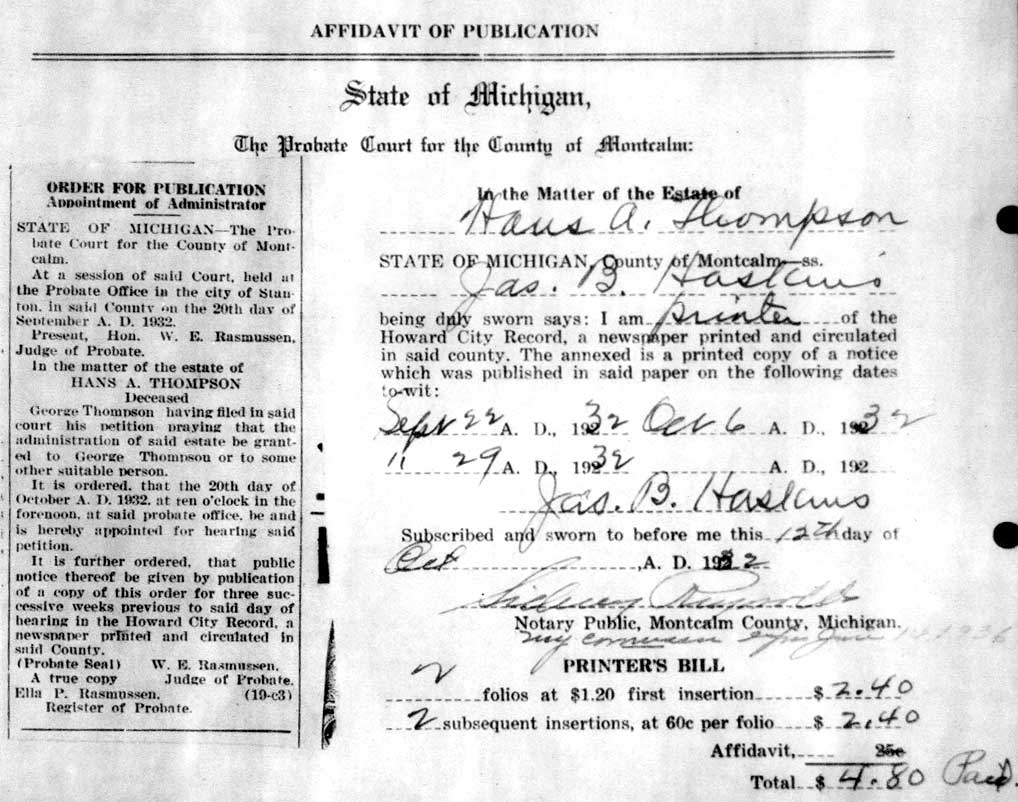 AFFIDAVIT OF PUBLICATION
State of Michigan,
The Probate Court for the County of Montcalm:
ORDER FOR PUBLICATION
Appointment of Administrator
STATE OF MICHIGAN—The Pro-
bate Court for the County of Mont-
calm.
At a session of said Court, held at
the Probate Office in the city of Stan-
ton, in said County on the 20th day of
September A. D. 1932.
Present, Hon. W. E. Rasmussen,
Judge of Probate.
In the matter of the estate of
HANS A. THOMPSON
Deceased
George Thompson having filed in said
court his petition praying that the
administration of said estate be grant-
ed to George Thompson or to some
other suitable person.
It is ordered, that the 20th day of
October A. D. 1932, at ten o'clock in the
forenoon, at said probate office, be and
is hereby appointed for hearing said
petition.
It is further ordered, that public
notice thereof be given by publication
of a copy of this order for three suc-
cessive weeks previous to said day of
hearing in the Howard City Record, a
newspaper printed and circulated in
said County.
(Probate Seal) W. E. Rasmussen,
A true copy Judge of Probate.
Ella P. Rasmussen, (19-c3)
Register of Probate.
In the Matter of the Estate of
Hans A. Thompson
STATE OF MICHIGAN, County of Montcalm—ss.
Jas. B. Haskins
being duly sworn says: I am printer of the
Howard City Record, a newspaper printed and circulated
in said county. The annexed is a printed copy of a notice
which was published in said paper on the following dates
to-wit:
Sept 22 A. D., 1932 Oct 6 A. D., 1932
" 29 A. D., 1932 A. D., 192
Jas. B. Haskins
Subscribed and sworn to before me this 12th day of
Oct, A. D. 1932
Notary Public, Montcalm County, Michigan.
My commission 1936
PRINTER'S BILL
2 folios at $1.20 first insertion $ 2.40
2 subsequent insertions, at 60c per folio $ 2.40
Affidavit, 25c
Total $ 4.80 Paid.